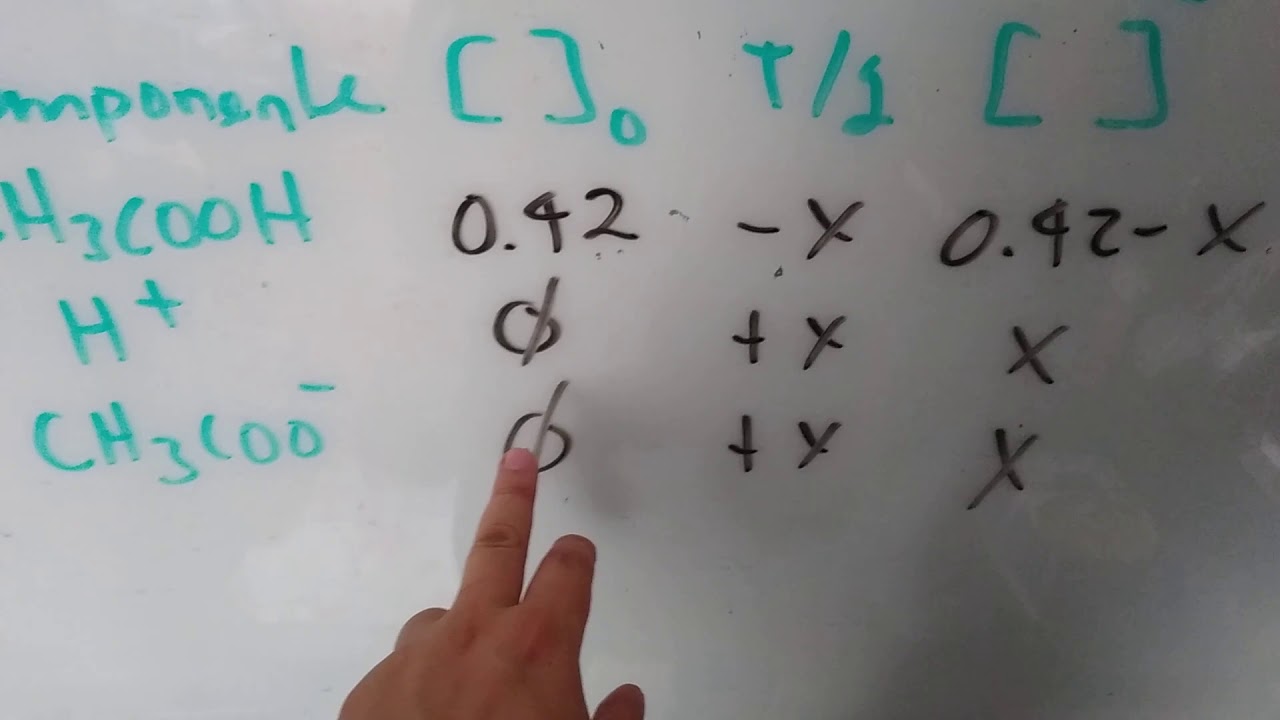 omponente [ ]₀ T/g [ ]
H₃COOH 0.42 - X 0.42 - X
H⁺ ∅ + X X
CH₃COO⁻ ∅ + X X